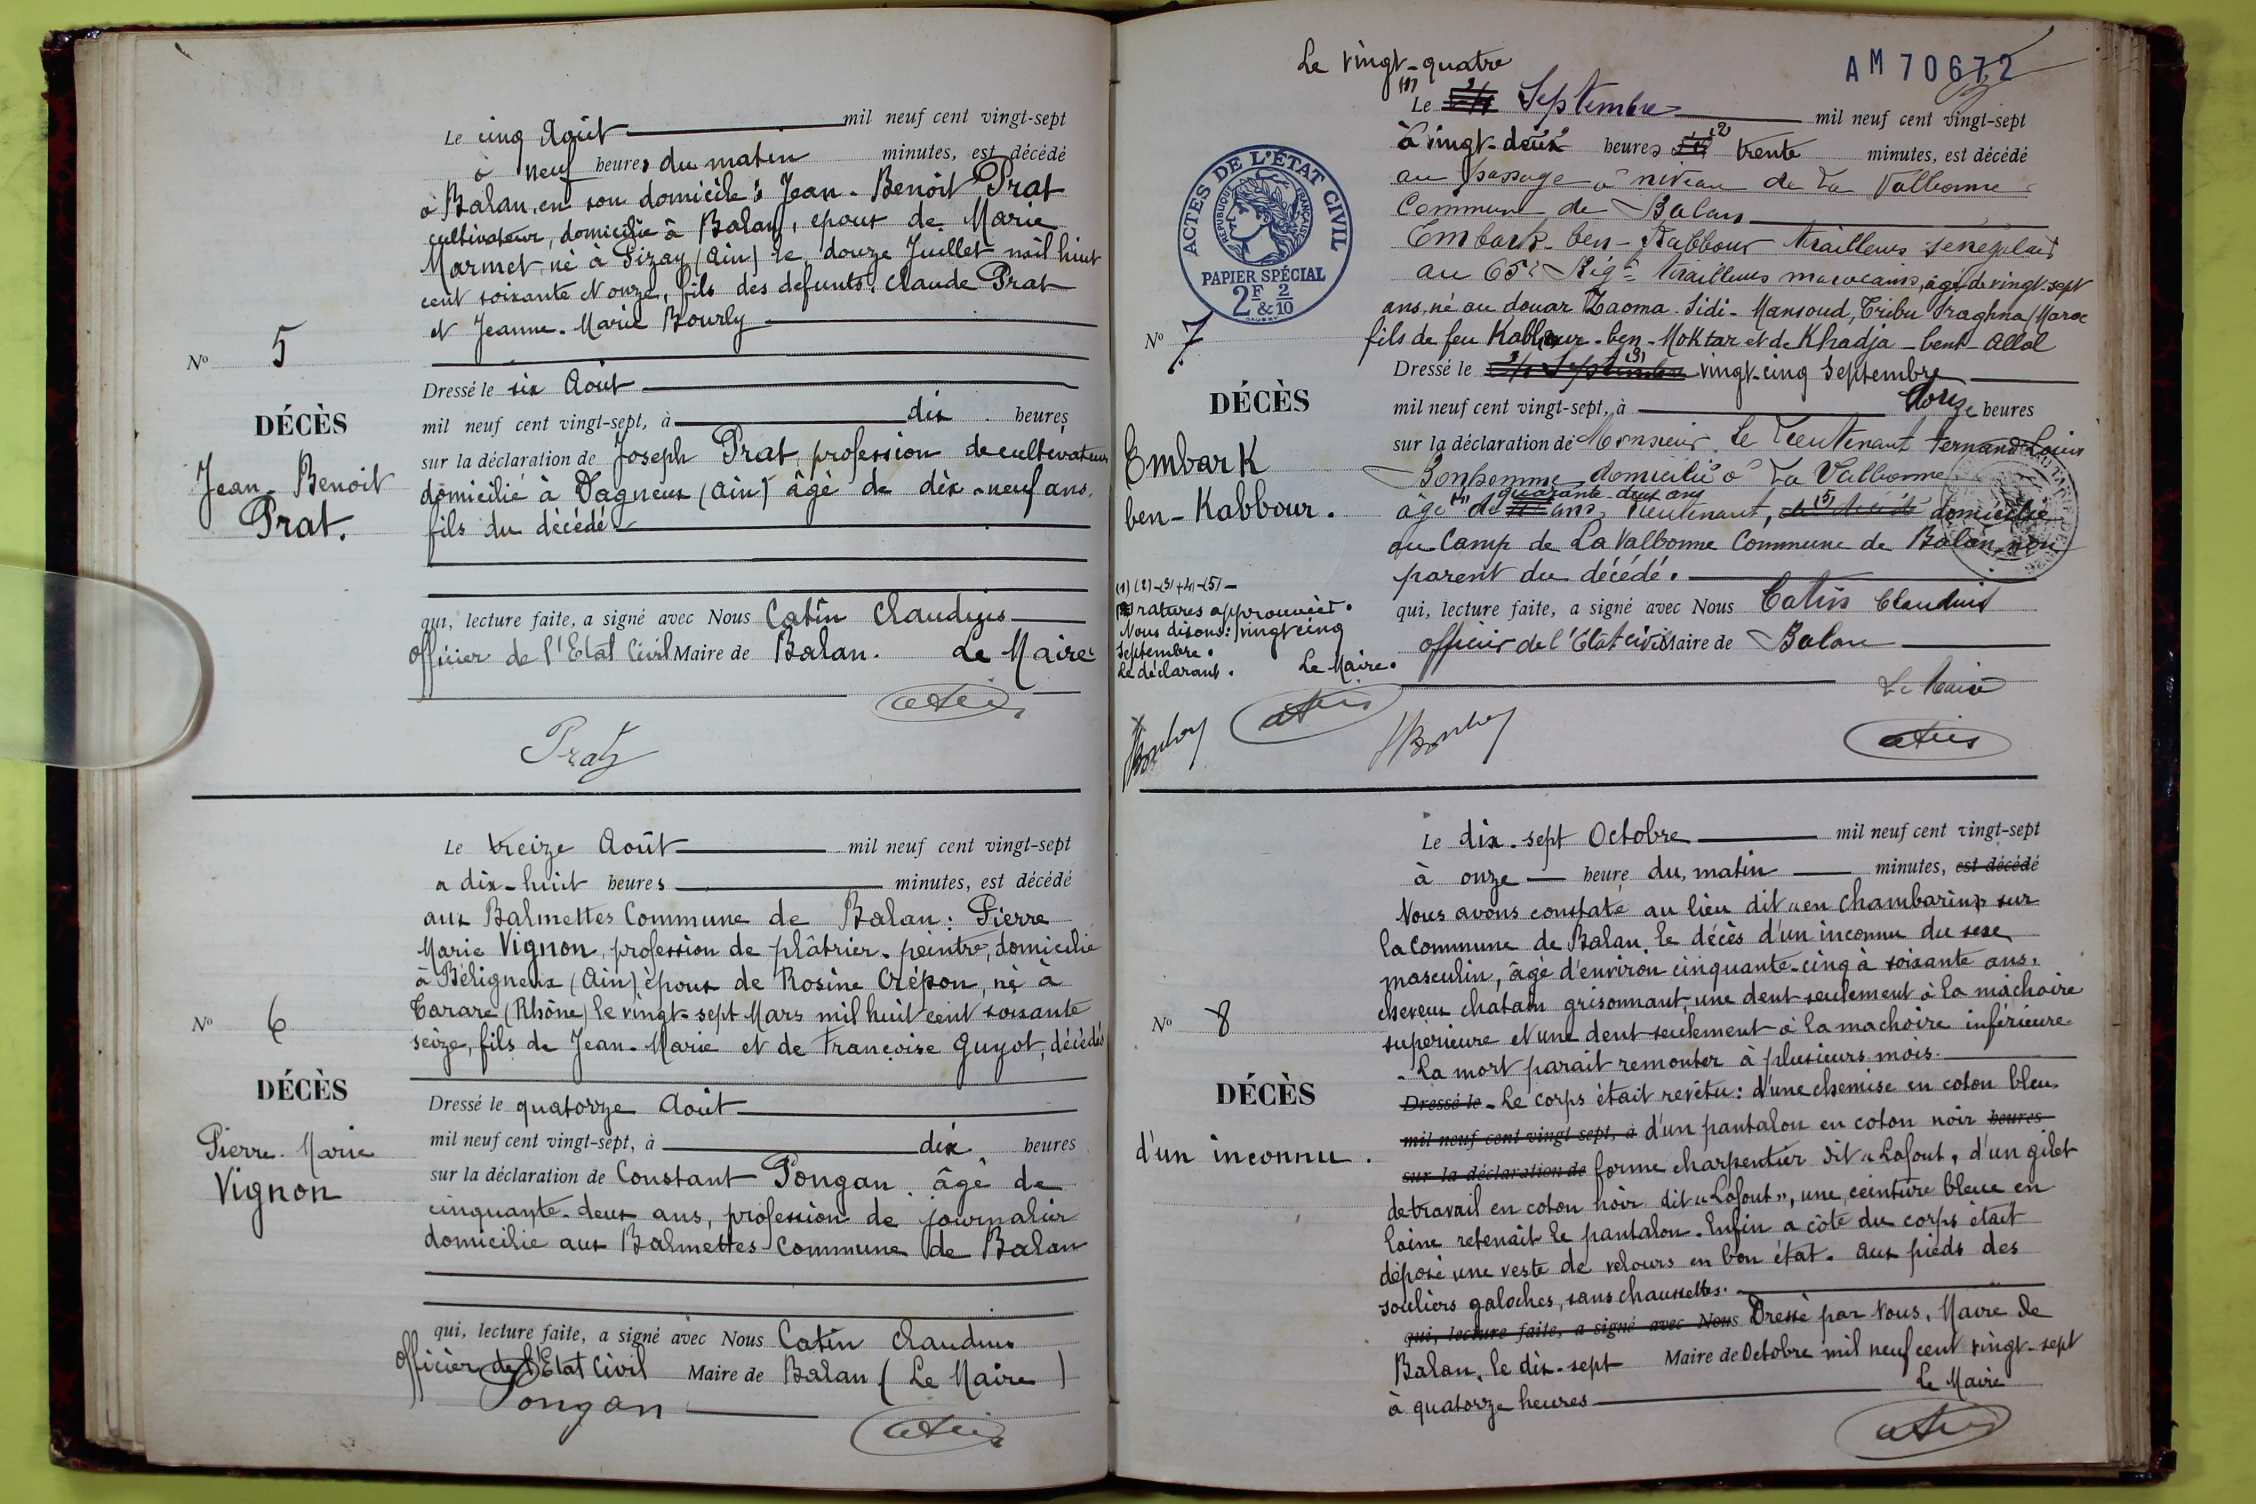 Le cinq Août mil neuf cent vingt-sept
à neuf heures du matin minutes, est décédé
à Balan, en son domicile : Jean-Benoit Prat
cultivateur, domicilié à Balan, epoux de Marie
Marmet, né à Pizay (Ain) le douze Juillet mil huit
cent soixante et onze, fils des defunts : Claude Prat
et Jeanne-Marie Bourly
No 5
DÉCÈS
Jean-Benoit
Prat.
Dressé le six Août
mil neuf cent vingt-sept, à dix heures
sur la déclaration de Joseph Prat, profession de cultivateur
domicilié à Dagneux (Ain) âgé de dix-neuf ans,
fils du décédé
qui, lecture faite, a signé avec Nous Catin Claudius
Officier de l'Etat Civil Maire de Balan. Le Maire
Catin
Prat
Le treize Août mil neuf cent vingt-sept
a dix-huit heures minutes, est décédé
aux Balmettes Commune de Balan : Pierre
Marie Vignon, profession de plâtrier-peintre, domicilié
à Béligneux (Ain) époux de Rosine Crépon, né à
Tarare (Rhône) le vingt-sept Mars mil huit cent soixante
seize, fils de Jean-Marie et de Françoise Guyot, décédés
No 6
DÉCÈS
Pierre-Marie
Vignon
Dressé le quatorze Août
mil neuf cent vingt-sept, à dix heures
sur la déclaration de Constant Pongan âgé de
cinquante-deux ans, profession de journalier
domicilié aux Balmettes Commune de Balan
qui, lecture faite, a signé avec Nous Catin Claudius
Officier de l'Etat Civil Maire de Balan (Le Maire)
Pongan
Catin
AM 70672
Le vingt-quatre
(1)
Le Septembre mil neuf cent vingt-sept
à vingt-deux heures (2) trente minutes, est décédé
au passage à niveau de La Valbonne
Commune de Balan
Embark-ben-Kabbour tirailleur sénégalais
au 65e Régt tirailleurs marocains, âgé de vingt-sept
ans, né au douar Zaoma-Sidi-Mansoud, Tribu Sraghna (Maroc
fils de feu Kabbour-ben-Moktar et de Khadja-bent-Allol
ACTES DE L'ÉTAT CIVIL
RÉPUBLIQUE FRANÇAISE
PAPIER SPÉCIAL
2F & 2/10
No 7
DÉCÈS
Embark
ben-Kabbour.
Dressé le Septembre (3) vingt-cinq Septembre
mil neuf cent vingt-sept, à onze heures
sur la déclaration de Monsieur le Lieutenant Fernand Louis
Bonhomme domicilié à La Valbonne
quarante-deux ans
âgé (4) de ans, Lieutenant, (5) domicilié
au Camp de La Valbonne Commune de Balan, non
parent du décédé.
(1) (2)-(3)+4)-(5)-
ratures approuvées.
Nous disons : vingt cinq
Septembre.
Le déclarant. Le Maire.
qui, lecture faite, a signé avec Nous Catin Claudius
officier de l'Etat civil Maire de Balan
Le Maire
Catin
Le dix-sept Octobre mil neuf cent vingt-sept
à onze heure du matin minutes, est décédé
Nous avons constaté au lieu dit "en Chambarin" sur
la Commune de Balan le décès d'un inconnu du sexe
masculin, âgé d'environ cinquante-cinq à soixante ans,
cheveux chatain grisonnant, une dent seulement à la machoire
supérieure et une dent seulement à la machoire inférieure.
- La mort parait remonter à plusieurs mois.
No 8
DÉCÈS
d'un inconnu.
Dressé le - Le corps était revêtu : d'une chemise en coton bleu
mil neuf cent vingt-sept, à d'un pantalon en coton noir heures
sur la déclaration de forme charpentier dit "Lafout", d'un gilet
de travail en coton noir dit "Lafout", une ceinture bleue en
laine retenait le pantalon. Enfin a côté du corps était
déposé une veste de velours en bon état. Aux pieds des
souliers galoches, sans chaussettes.
qui, lecture faite, a signé avec Nous Dressé par Nous, Maire de
Balan, le dix-sept Maire de Octobre mil neuf cent vingt-sept
à quatorze heures Le Maire
Catin